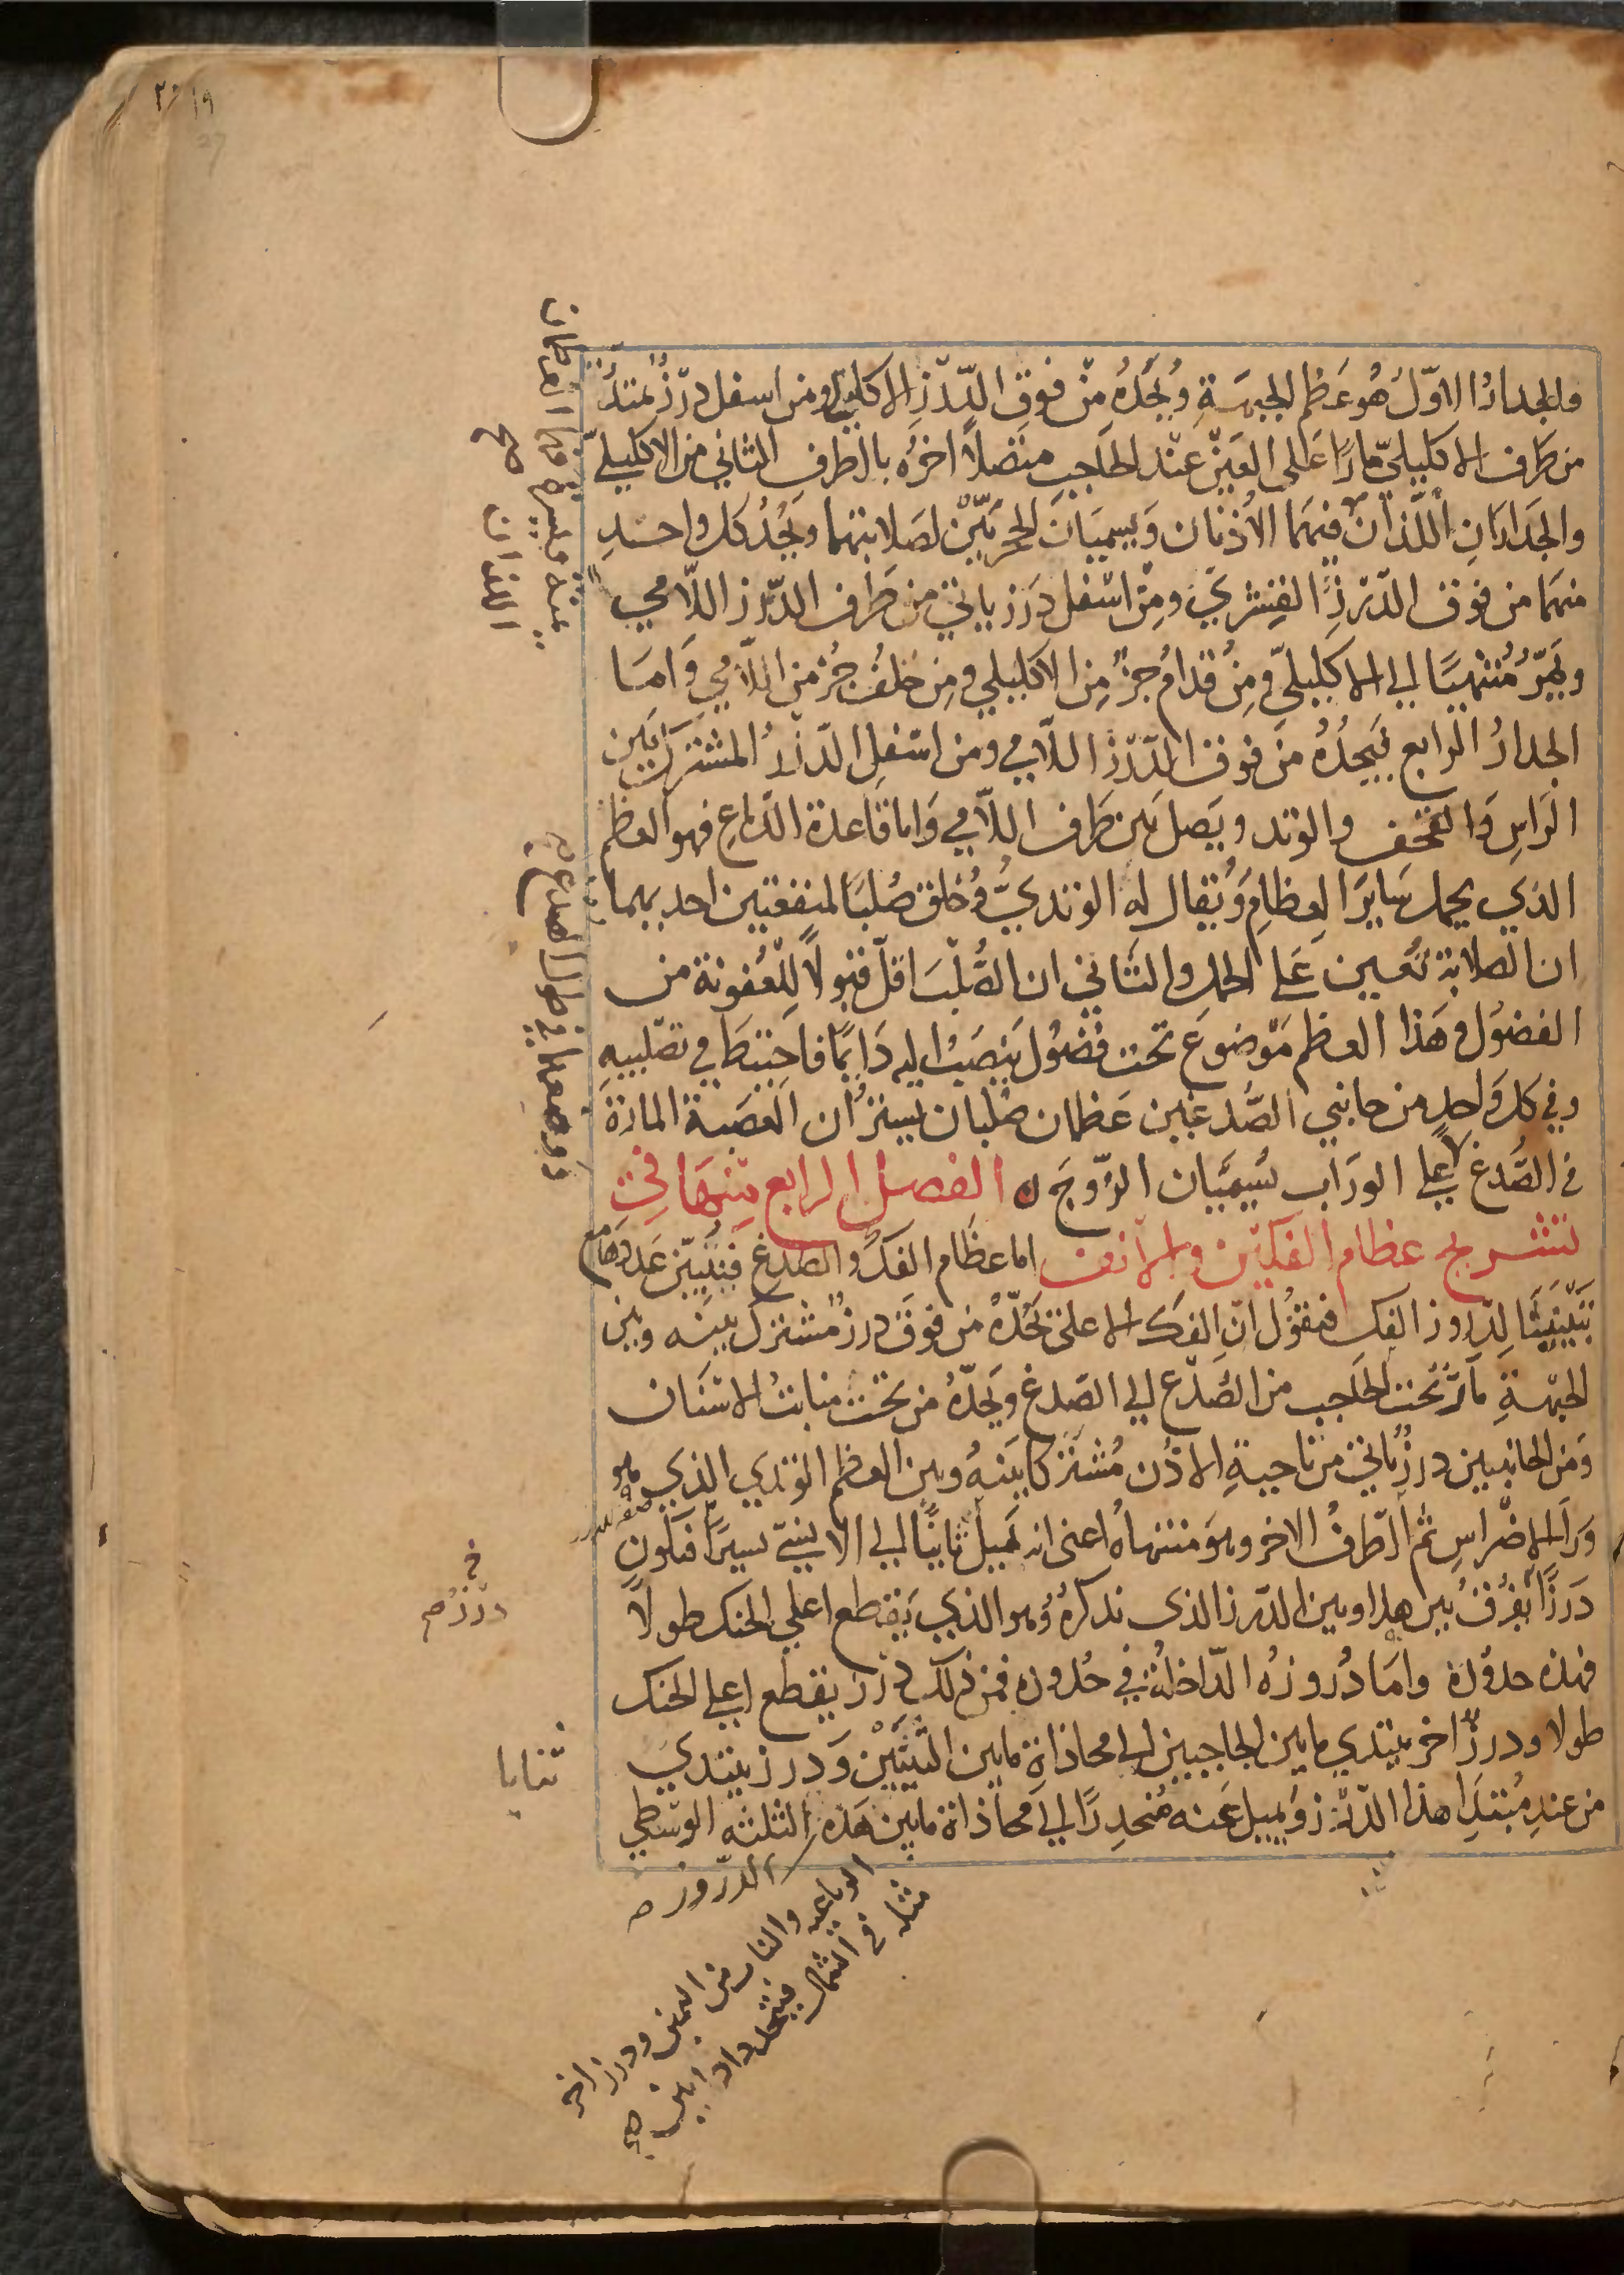 ١٩
فالجدار الاوّل هُو عَظم الجبهَةِ وُيحَدُهُ مِنْ فوقِ الدّرْزِ الاكليلي ومن اسفل درْزٌ يمتدُّ
من طرف الاكليليّ مارًا عَلى العَيْن عنْد الحاجب متصلاً اخرُه بالطرفِ الثاني من الاكليليّ
والجدارَانِ اللّذانْ فيهمَا الاُذنان وَيسميَان الحَجَريّيْن لصَلابتهما ويَحُدُ كل واحدٍ
منهمَا من فوق الدّرْزِ القِشريّ ومِنْ اسْفل دَرَز ياتي من طرف الدّرز اللّامي
ويَمرّ مُنتهيًا الي الاكليليّ ومِنْ قدام جزءٌ مِن الاكليلي ومِن خلف جُزْ من اللّامي وَامَا
الجدارُ الرابع فيَحدُهُ مَن فوق الدّرْزِ اللاّمي ومن اسْفلِ الدّرْزُ المشتَرك بَين
الرَاسِ وَالقحف والوتد ويَصل بَين طرف اللاّمي وَاما قاعدة الدّماغ فهو العظم
الذي يحمل سَايرَ العِظامِ وَيُقال له الوتديُّ وُخلق صُلبًا لمنفعَتين احديهما
ان الصلابة تُعين عَلي الحمل والثاني ان الصُّلْبَ اقلّ قبولاً للعُفونة من
الفضوُل وهَذا العظم مَوْضوع تحت فُضُول يَنصَبُ اليه دَايمًا فاحتيطَ في تصْليبه
وفي كل واحدٍ من جانبي الصُّدغيَن عَظمان صُلبان يَسترُان العَصَبة المارةَ
في الصُّدغ علي الورَاب يُسَميَّان الزّوجَ ه الفصل الرابع مِنهَا في
تشريح عظام الفكيْن والانف اما عظَام الفكُ والصّدغ فيتبيّن عَددهَا مع
تبيِيننَا لِدُروز الفك فنقوُل انّ الفكَ الاعلى يَحُدُّهُ من فوق درزٌ مُشترك بينه وبين
الجبهَةِ مارٌ تحت الحاجب من الصَّدْغ الي الصّدغ ويَحدّهُ من تحت منابتُ الاسْنَان
وَمن الجانبين درزٌ ياتي من ناحيةِ الاذُن مُشتَركا بَينهُ وبين العظم الوتدي الذي هو
وَرَا الاضْراسِ ثم الطّرفُ الاخر وهوَ منتهاهُ اعنى انه يَميلُ ثانيًا الي الانسيّ يسيرًا فيكون
دَرزًا يُفرُقُ بين هذا وبين الدّرز الذى نذكرهُ وُهو الذي يَقطع اعلي الحنك طولاً
فهذه حدوُدهُ وامَا دُروزهُ الدّاخلةُ في حُدوده فمن ذلك دَرْز يقطع اعلي الحنك
طولا ودرزٌ اخر يبتدي ما بين الحاجبين الي محاذاة ما بين الثَنِيّتَيْن وَدرز يبتدي
من عندِ مُبتداِ هذا الدّرْز وُيميل عنه مُنحدِرًا الي محاذاة ما بين هَذه الثلثه الوسْطي
الرباعيه والناب من اليمين ودرز اخر
مثله في الشمال فيتحدد اذا بين
الدّروز
درْزٌ
ثنايا
اللذان